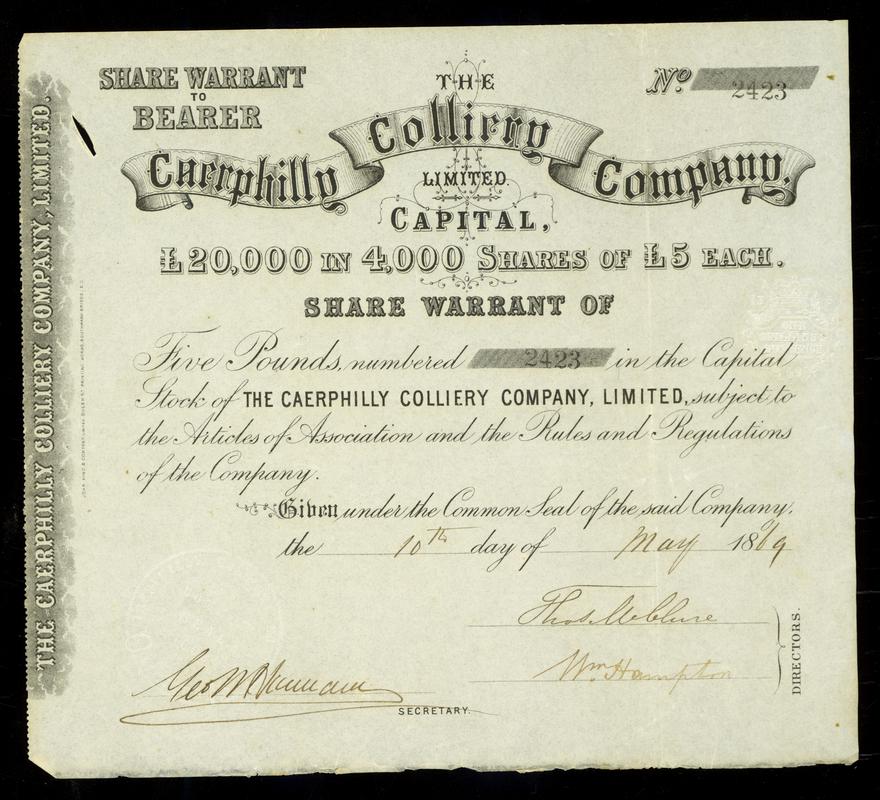 SHARE WARRANT
TO
BEARER
THE
No. 2423
Caerphilly Colliery Company.
LIMITED.
CAPITAL,
£20,000 IN 4,000 SHARES OF £5 EACH.
SHARE WARRANT OF
Five Pounds, numbered 2423 in the Capital
Stock of THE CAERPHILLY COLLIERY COMPANY, LIMITED, subject to
the Articles of Association and the Rules and Regulations
of the Company.
Given under the Common Seal of the said Company,
the 10th day of May 1869
Thos. McClure
Wm. Hampton
DIRECTORS.
Geo W
SECRETARY.
THE CAERPHILLY COLLIERY COMPANY, LIMITED.